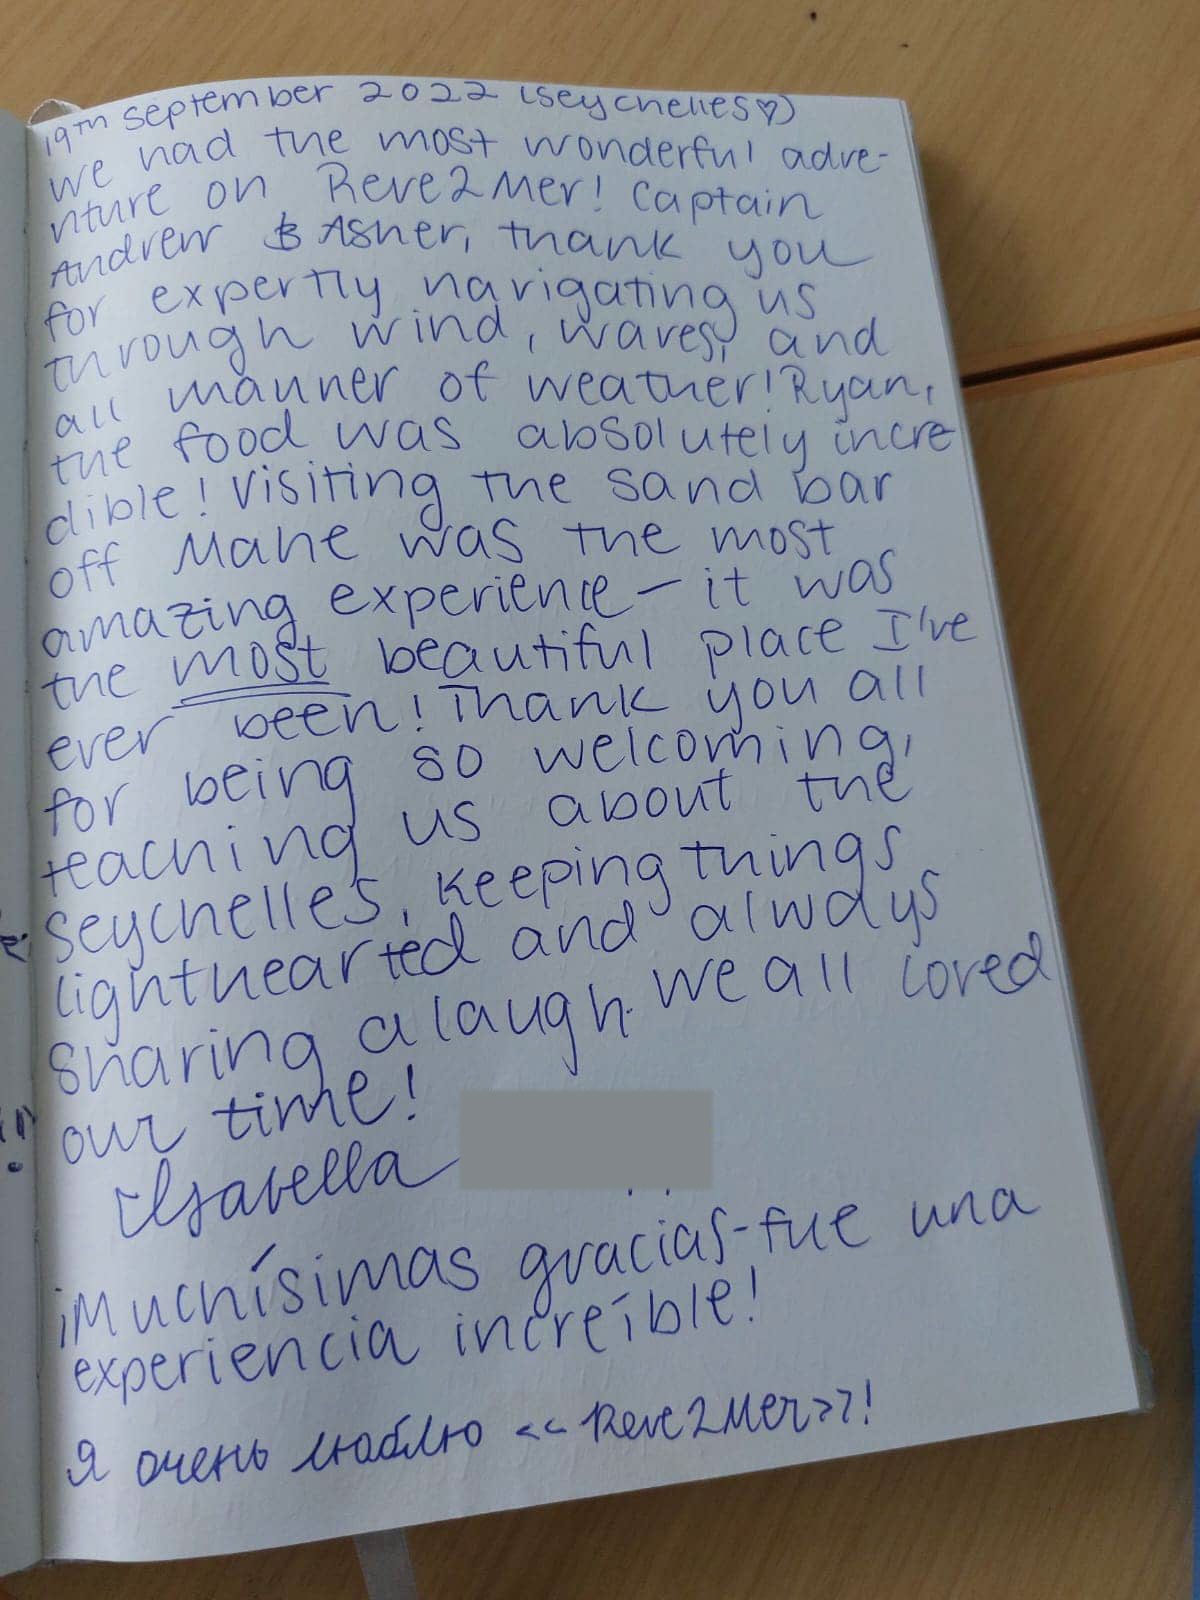 19th September 2022 (Seychelles♡)
We had the most wonderful adve-
nture on Reve2Mer! Captain
Andrew & Asher, thank you
for expertly navigating us
through wind, waves, and
all manner of weather! Ryan,
the food was absolutely incre
dible! Visiting the sand bar
off Mahe was the most
amazing experience – it was
the most beautiful place I've
ever been! Thank you all
for being so welcoming,
teaching us about the
Seychelles, keeping things
lighthearted and always
sharing a laugh. We all loved
our time!
Isabella
¡Muchísimas gracias-fue una
experiencia increíble!
Я очень люблю <<Reve2Mer>>!